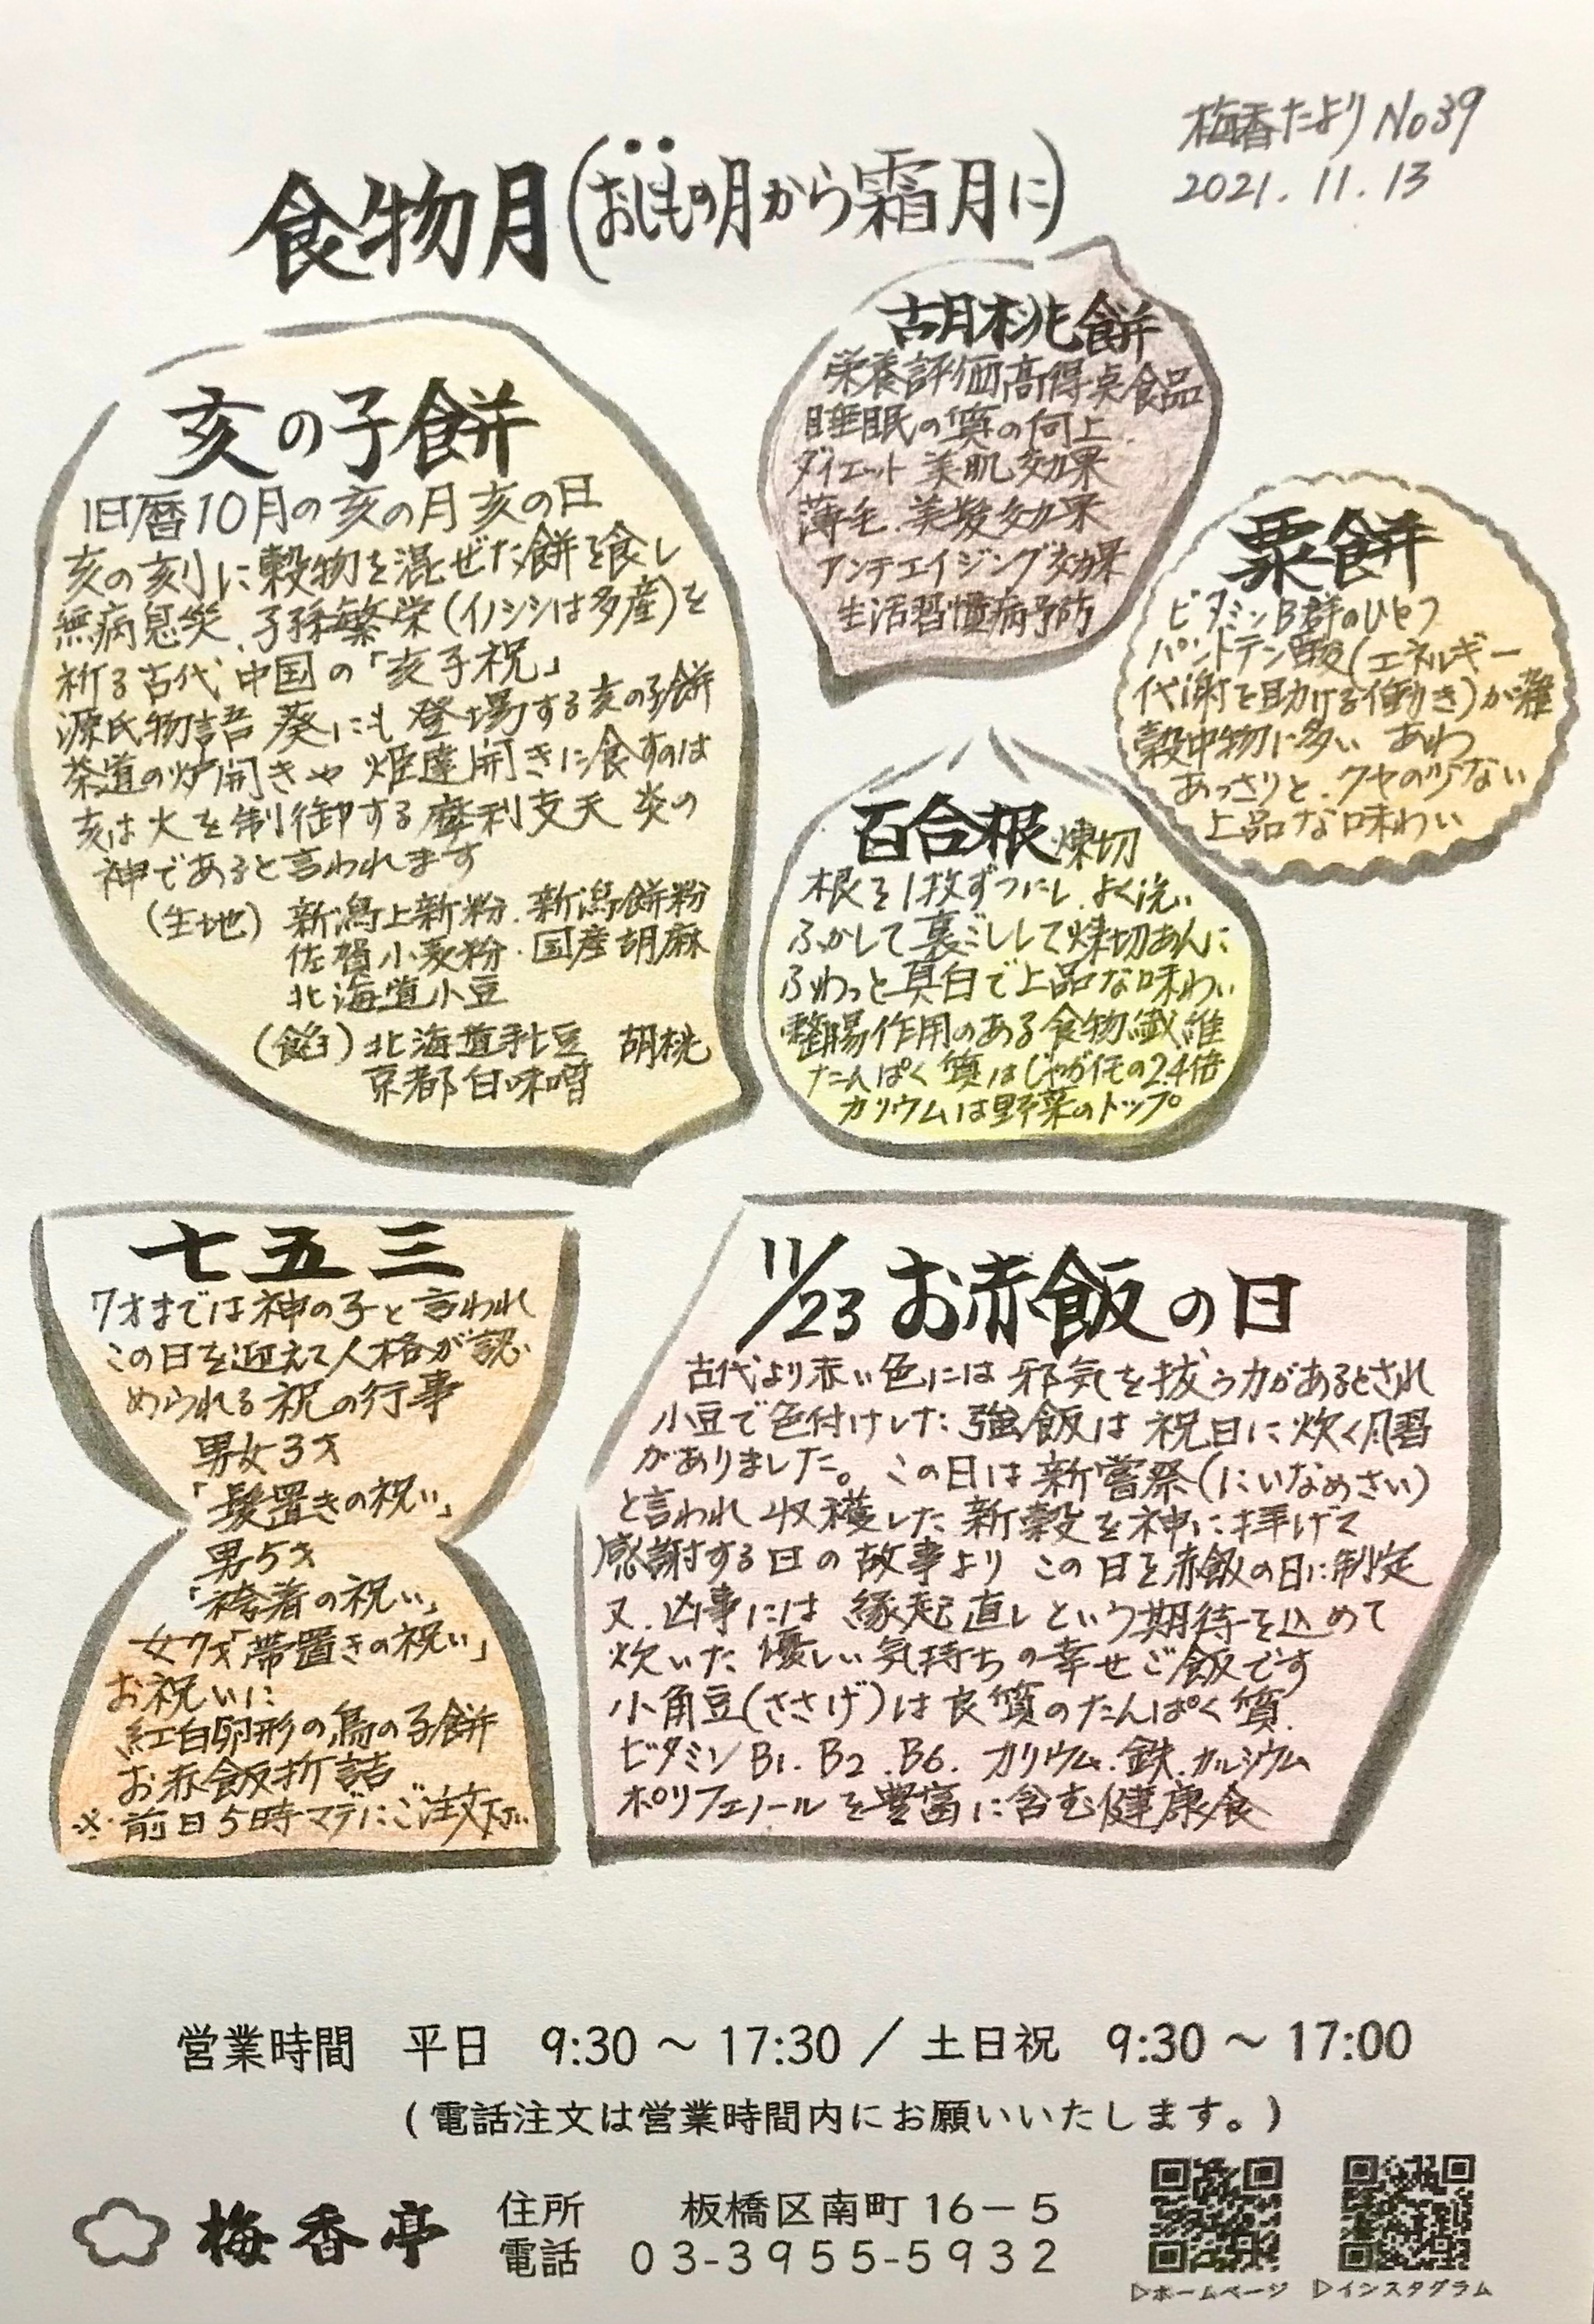 梅香たより No39
2021.11.13
食物月(おしもの月から霜月に)
亥の子餅
旧暦10月の亥の月亥の日
亥の刻に穀物を混ぜた餅を食し
無病息災.子孫繁栄(イノシシは多産)を
祈る古代中国の「亥子祝」
源氏物語 葵にも登場する亥の子餅
茶道の炉開きや 炬達開きに食すのは
亥は火を制御する摩利支天 炎の
神であると言われます
(生地) 新潟上新粉.新潟餅粉
佐賀小麦粉.国産胡麻
北海道小豆
(餡) 北海道小豆 胡桃
京都白味噌
古月桃餅
栄養評価高得点食品
睡眠の質の向上.
ダイエット 美肌効果
薄毛.美髪効果
アンチエイジング効果
生活習慣病予防
粟餅
ビタミンB群のひとつ
パントテン酸(エネルギー
代謝を助ける働き)が雑
穀中物に多い あわ
あっさりと.クセの少ない
上品な味わい
百合根煉切
根を1枚ずつにし.よく洗い
ふかして裏ごしして煉切あんに
ふわっと真白で上品な味わい
整腸作用のある食物繊維
たんぱく質はじゃがイモの2.4倍
カリウムは野菜のトップ
七五三
7才までは神の子と言われ
この日を迎えて人格が認
められる祝の行事
男女3才
「髪置きの祝い」
男5才
「袴着の祝い」
女7才「帯置きの祝い」
お祝いに
紅白卵形の鳥の子餅
お赤飯折詰
※前日5時マデにご注文下さい
11/23 お赤飯の日
古代より赤い色には 邪気を抜う力があるとされ
小豆で色付けした 強飯は 祝日に炊く風習
がありました。この日は新嘗祭(にいなめさい)
と言われ 収穫した新穀を神に拝げて
感謝する日の故事より この日を赤飯の日に制定
又.凶事には 縁起直しという期待を込めて
炊いた 優しい気持ちの幸せご飯です
小角豆(ささげ)は良質のたんぱく質.
ビタミンB1.B2.B6.カリウム.鉄.カルシウム
ポリフェノールを豊富に含む健康食
営業時間 平日 9:30 ～ 17:30 / 土日祝 9:30 ～ 17:00
(電話注文は営業時間内にお願いいたします。)
梅香亭
住所 板橋区南町16－5
電話 03-3955-5932
▷ホームページ ▷インスタグラム